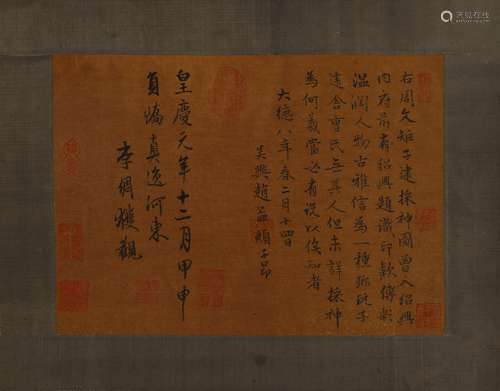 右周文矩子建採神圖曾入紹興
內府前有紹興題識印款傳彩
溫潤人物古雅信為一種珍玩子
建舍曹氏無其人但未詳採神
為何義當必有說以俟知者
大德八年春二月十四日
吳興趙孟頫子昂
皇慶元年十二月甲申
員嶠真逸河東
李倜獲觀